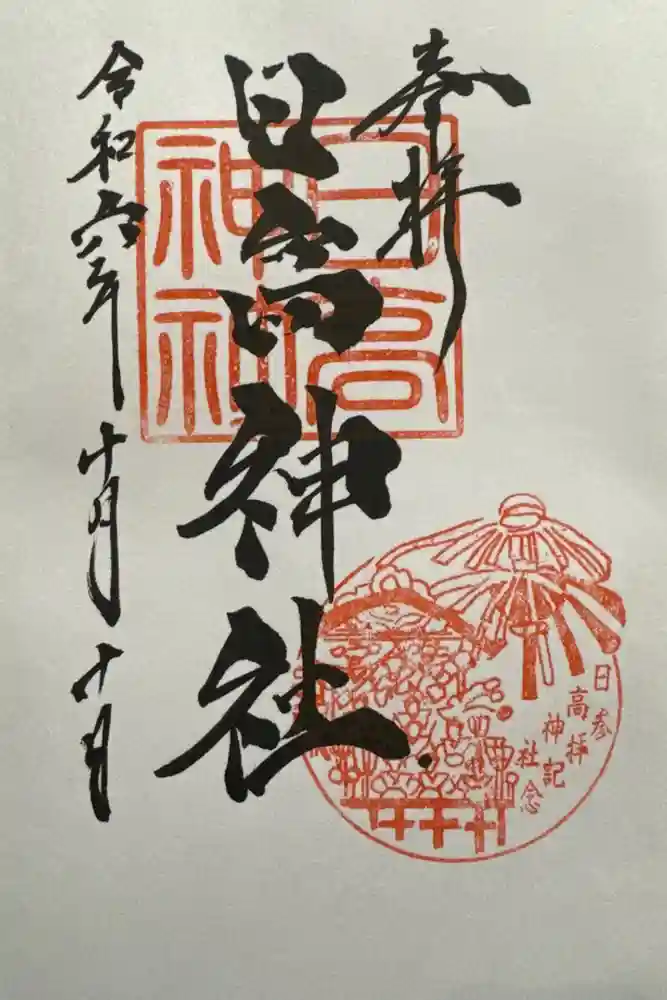 奉拝
日高神社
令和六年十月十日
日高
参拝記念
日高神社